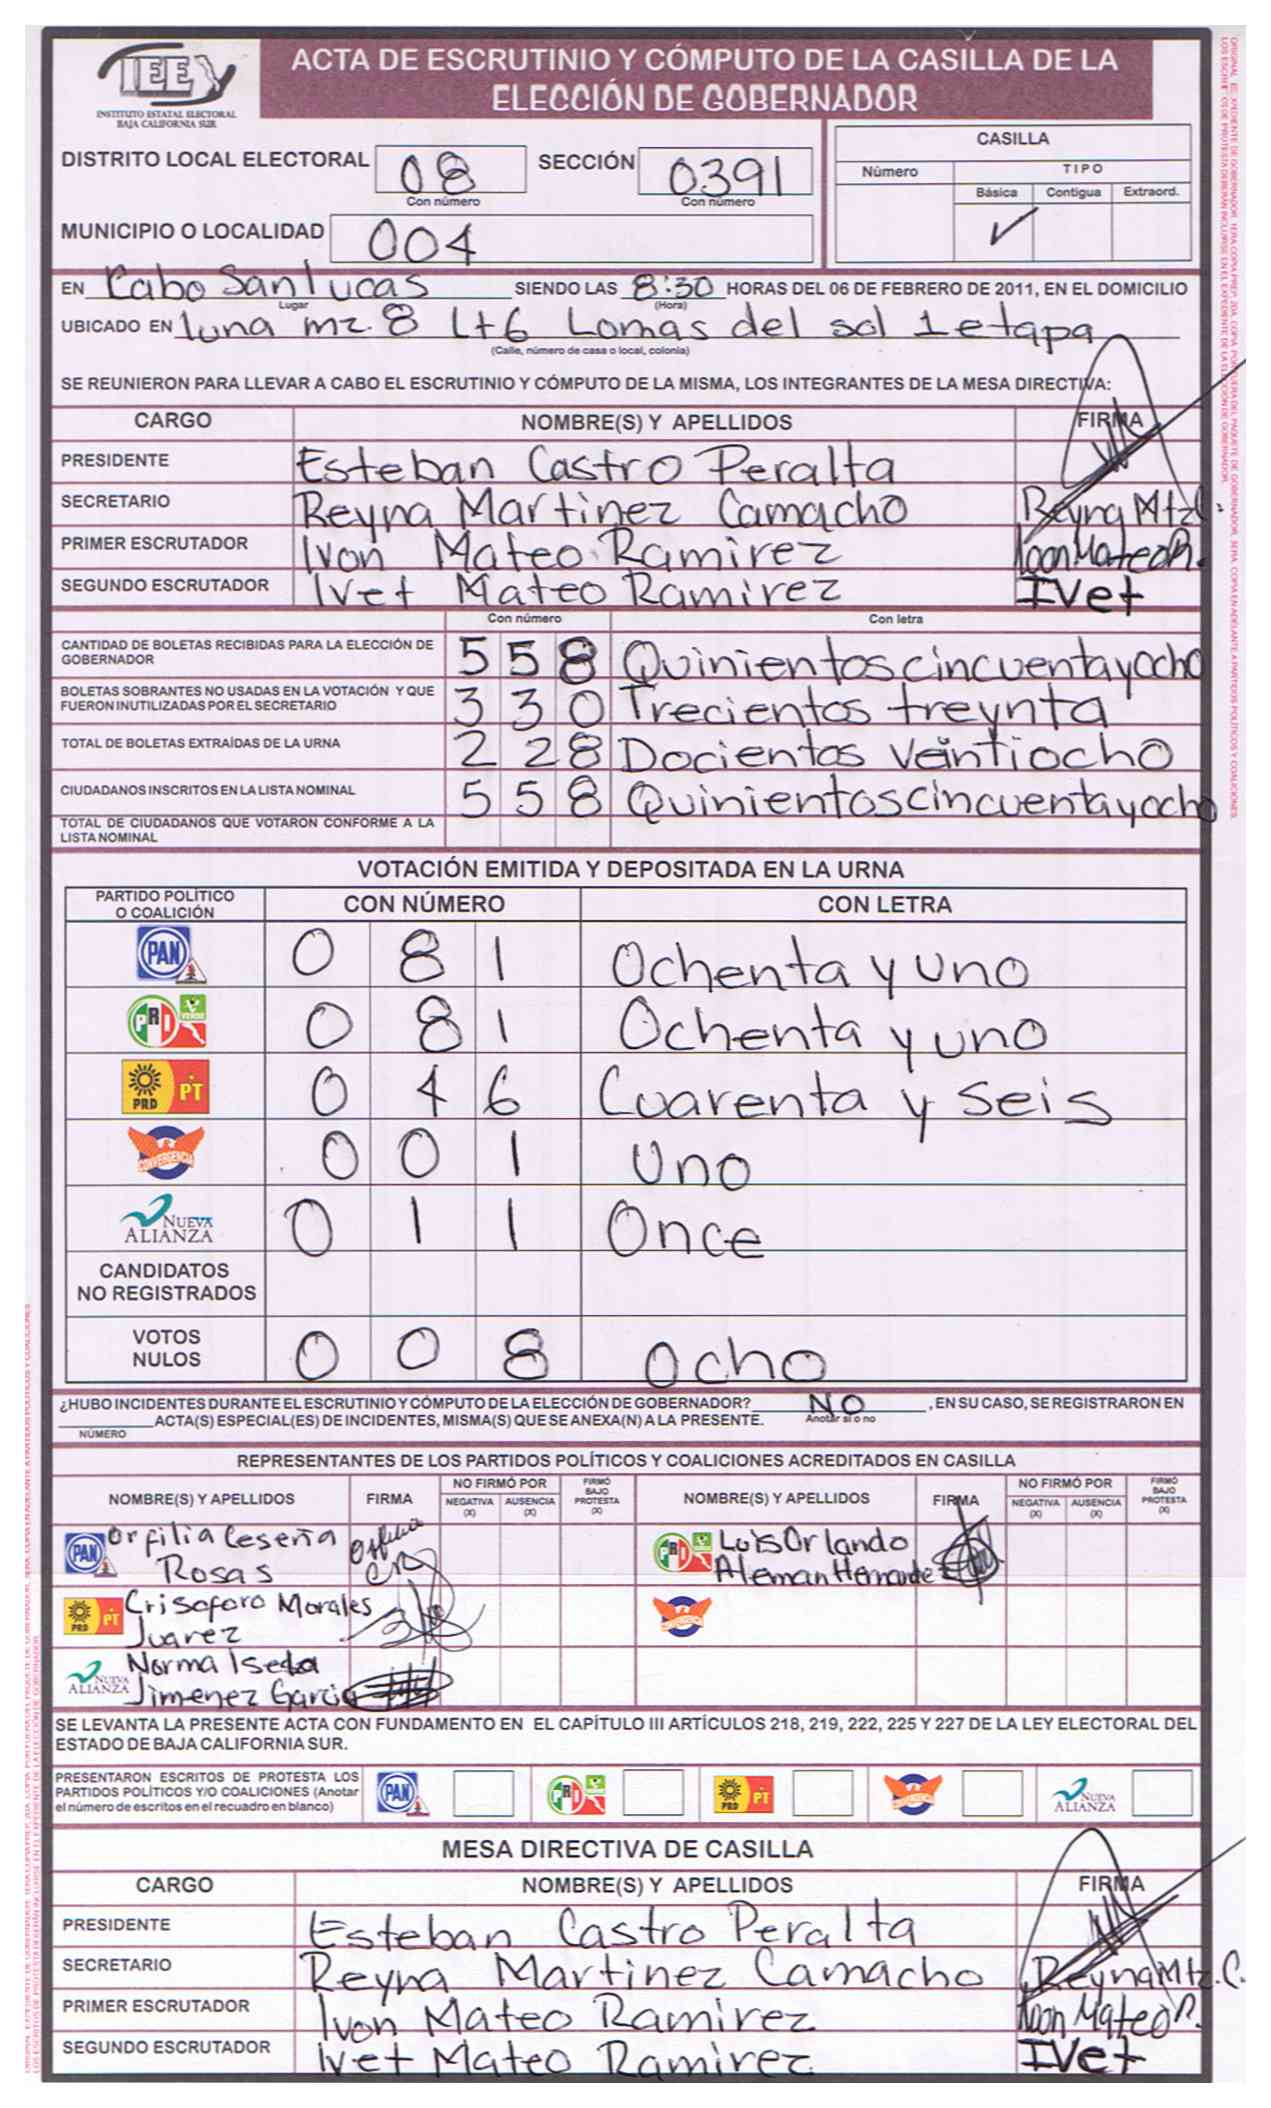 IEE
INSTITUTO ESTATAL ELECTORAL
BAJA CALIFORNIA SUR
ACTA DE ESCRUTINIO Y CÓMPUTO DE LA CASILLA DE LA
ELECCIÓN DE GOBERNADOR
DISTRITO LOCAL ELECTORAL 08 SECCIÓN 0391
Con número Con número
CASILLA
Número TIPO
Básica Contigua Extraord.
✓
MUNICIPIO O LOCALIDAD 004
EN Cabo San lucas SIENDO LAS 8:30 HORAS DEL 06 DE FEBRERO DE 2011, EN EL DOMICILIO
Lugar (Hora)
UBICADO EN luna mz. 8 Lt 6 Lomas del sol 1 etapa
(Calle, número de casa o local, colonia)
SE REUNIERON PARA LLEVAR A CABO EL ESCRUTINIO Y CÓMPUTO DE LA MISMA, LOS INTEGRANTES DE LA MESA DIRECTIVA:
CARGO NOMBRE(S) Y APELLIDOS FIRMA
PRESIDENTE Esteban Castro Peralta
SECRETARIO Reyna Martinez Camacho Reyna Mtz C.
PRIMER ESCRUTADOR Ivon Mateo Ramirez Ivon Mateo R.
SEGUNDO ESCRUTADOR Ivet Mateo Ramirez IVet
Con número Con letra
CANTIDAD DE BOLETAS RECIBIDAS PARA LA ELECCIÓN DE
GOBERNADOR 558 Quinientos cincuenta y ocho
BOLETAS SOBRANTES NO USADAS EN LA VOTACIÓN Y QUE
FUERON INUTILIZADAS POR EL SECRETARIO 330 Trecientos treynta
TOTAL DE BOLETAS EXTRAÍDAS DE LA URNA 228 Docientos veintiocho
CIUDADANOS INSCRITOS EN LA LISTA NOMINAL 558 Quinientos cincuenta y ocho
TOTAL DE CIUDADANOS QUE VOTARON CONFORME A LA
LISTA NOMINAL
VOTACIÓN EMITIDA Y DEPOSITADA EN LA URNA
PARTIDO POLÍTICO
O COALICIÓN CON NÚMERO CON LETRA
PAN 0 8 1 Ochenta y uno
PRI VERDE 0 8 1 Ochenta y uno
PRD PT 0 4 6 Cuarenta y seis
CONVERGENCIA 0 0 1 Uno
NUEVA ALIANZA 0 1 1 Once
CANDIDATOS
NO REGISTRADOS
VOTOS
NULOS 0 0 8 ocho
¿HUBO INCIDENTES DURANTE EL ESCRUTINIO Y CÓMPUTO DE LA ELECCIÓN DE GOBERNADOR? NO , EN SU CASO, SE REGISTRARON EN
ACTA(S) ESPECIAL(ES) DE INCIDENTES, MISMA(S) QUE SE ANEXA(N) A LA PRESENTE. Anotar si o no
NÚMERO
REPRESENTANTES DE LOS PARTIDOS POLÍTICOS Y COALICIONES ACREDITADOS EN CASILLA
NOMBRE(S) Y APELLIDOS FIRMA NO FIRMÓ POR NEGATIVA (X) AUSENCIA (X) FIRMÓ BAJO PROTESTA (X) NOMBRE(S) Y APELLIDOS FIRMA NO FIRMÓ POR NEGATIVA (X) AUSENCIA (X) FIRMÓ BAJO PROTESTA (X)
PAN Orfilia Ceseña Rosas PRI VERDE Luis Orlando Aleman Hernande
PRD PT Crisoforo Morales Juarez CONVERGENCIA
NUEVA ALIANZA Norma Isela Jimenez Garcia
SE LEVANTA LA PRESENTE ACTA CON FUNDAMENTO EN EL CAPÍTULO III ARTÍCULOS 218, 219, 222, 225 Y 227 DE LA LEY ELECTORAL DEL
ESTADO DE BAJA CALIFORNIA SUR.
PRESENTARON ESCRITOS DE PROTESTA LOS
PARTIDOS POLÍTICOS Y/O COALICIONES (Anotar
el número de escritos en el recuadro en blanco) PAN PRI PRD PT CONVERGENCIA NUEVA ALIANZA
MESA DIRECTIVA DE CASILLA
CARGO NOMBRE(S) Y APELLIDOS FIRMA
PRESIDENTE Esteban Castro Peralta
SECRETARIO Reyna Martinez Camacho Reyna Mtz. C.
PRIMER ESCRUTADOR Ivon Mateo Ramirez Ivon Mateo R.
SEGUNDO ESCRUTADOR Ivet Mateo Ramirez IVet